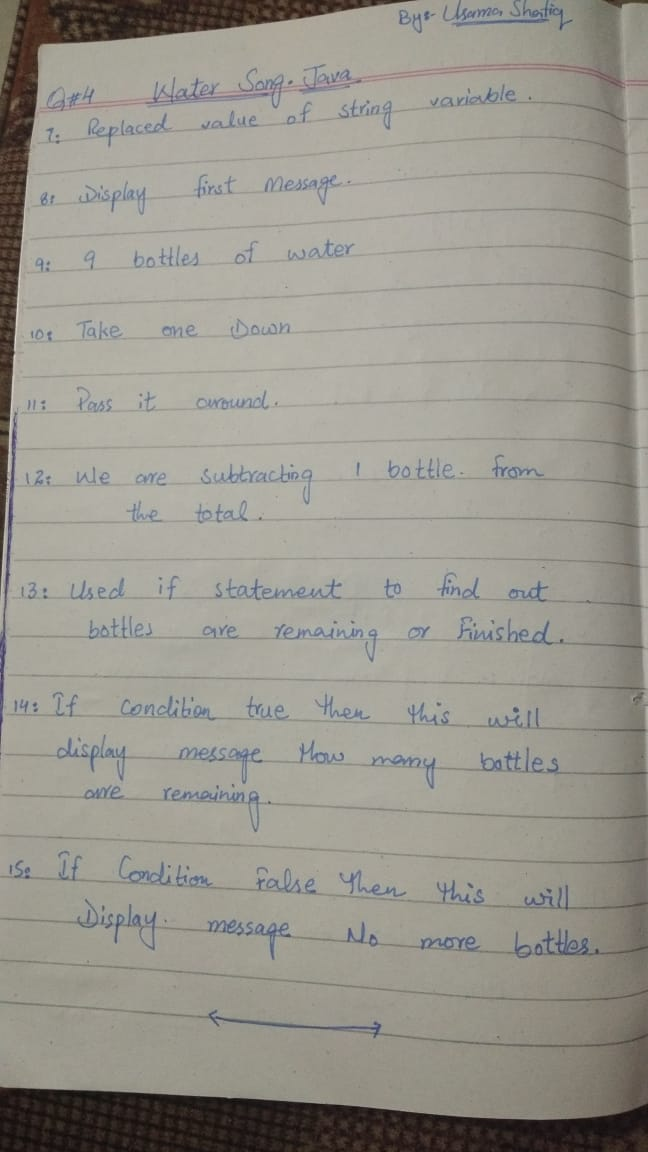 By:- Usama Shafiq
Q#4 Water Song. Java
7: Replaced value of string variable.
8: Display first Message.
9: 9 bottles of water
10: Take one Down
11: Pass it around.
12: We are subtracting 1 bottle. from
the total.
13: Used if statement to find out
bottles are remaining or Finished.
14: If Condition true then this will
display message How many bottles
are remaining.
15: If Condition False then this will
Display. message No more bottles.